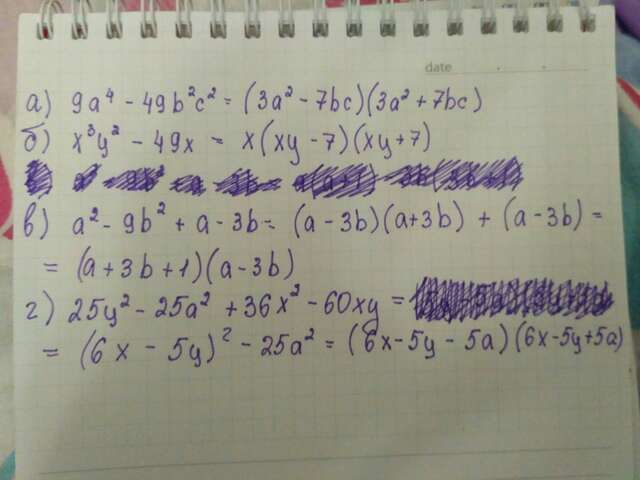 date
а) 9a⁴ - 49b²c² = (3a² - 7bc)(3a² + 7bc)
б) x³y² - 49x = x(xy - 7)(xy + 7)
в) a² - 9b² + a - 3b = (a - 3b)(a + 3b) + (a - 3b) =
= (a + 3b + 1)(a - 3b)
г) 25y² - 25a² + 36x² - 60xy =
= (6x - 5y)² - 25a² = (6x - 5y - 5a)(6x - 5y + 5a)